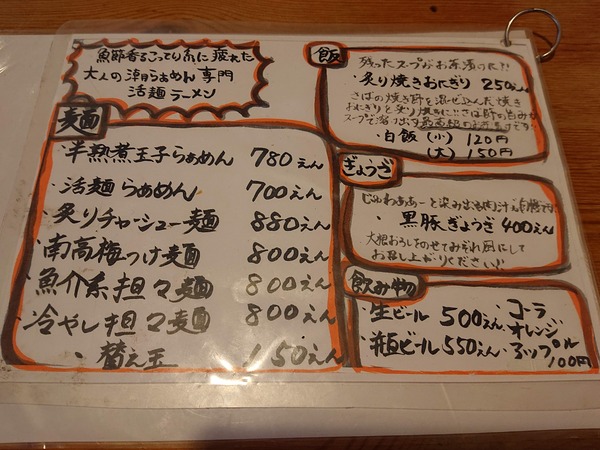 魚節香るこってり系に疲れた
大人の淸らぁめん専門
活麺ラーメン
麺
・半熟煮玉子らぁめん 780えん
・活麺らぁめん 700えん
・炙りチャーシュー麺 880えん
・南高梅つけ麺 800えん
・魚介系担々麺 800えん
・冷やし担々麺 800えん
・替え玉 150えん
飯
残ったスープがお茶漬けに!!
炙り焼きおにぎり 250えん
さばの焼き節を混ぜ込んだ焼き
おにぎりと炙り焼きに!!さば節の旨みが
スープで溶け出す
・白飯(小) 120円
(大) 150円
ぎょうざ
じゅわぁあーと染み出る肉汁
・黒豚ぎょうざ 400えん
大根おろしをのせてみぞれ風にして
お召し上がりください!!
飲み物
・生ビール 500えん
・瓶ビール 550えん
・コーラ
・オレンジ
・アップル
100円